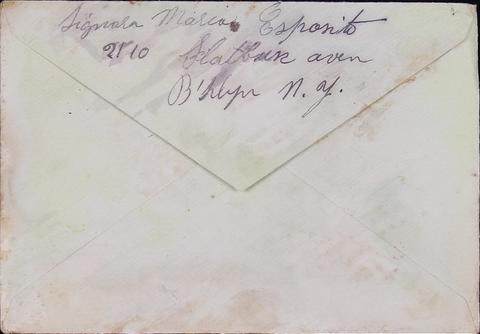 Signora Maria Esposito
2110 Flatbuse aven
B'klyn N.Y.